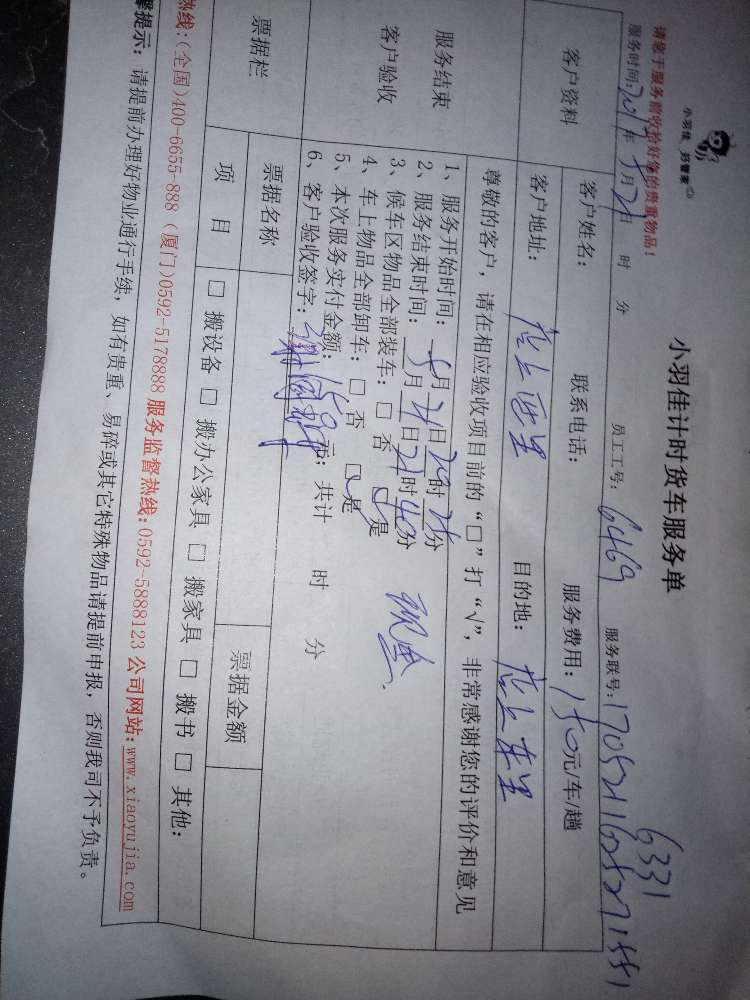 小羽佳 好管家
小羽佳计时货车服务单
6331
请您于服务前收拾好您的贵重物品！
服务时间：2017年5月21日 时 分 员工工号：6469 服务联号：
客户资料
客户姓名： 联系电话： 服务费用：150元/车/趟
客户地址：店上西里 目的地：店上东里
服务结束
客户验收
尊敬的客户，请在相应验收项目前的“□”打“√”，非常感谢您的评价和意见
1、服务开始时间：5月21日20时25分
2、服务结束时间：月日21时40分
3、候车区物品全部装车：□ 否 □是
4、车上物品全部卸车：□ 否 □是
5、本次服务实付金额：元；共计 时 分
现金
6、客户验收签字：
票据栏 票据名称 票据金额
项 目 □ 搬设备 □ 搬办公家具 □ 搬家具 □ 搬书 □ 其他：
热线：(全国)400-6655-888 (厦门)0592-5178888 服务监督热线:0592-5888123 公司网站:www.xiaoyujia.com
提示：请提前办理好物业通行手续，如有贵重、易碎或其它特殊物品请提前申报，否则我司不予负责。